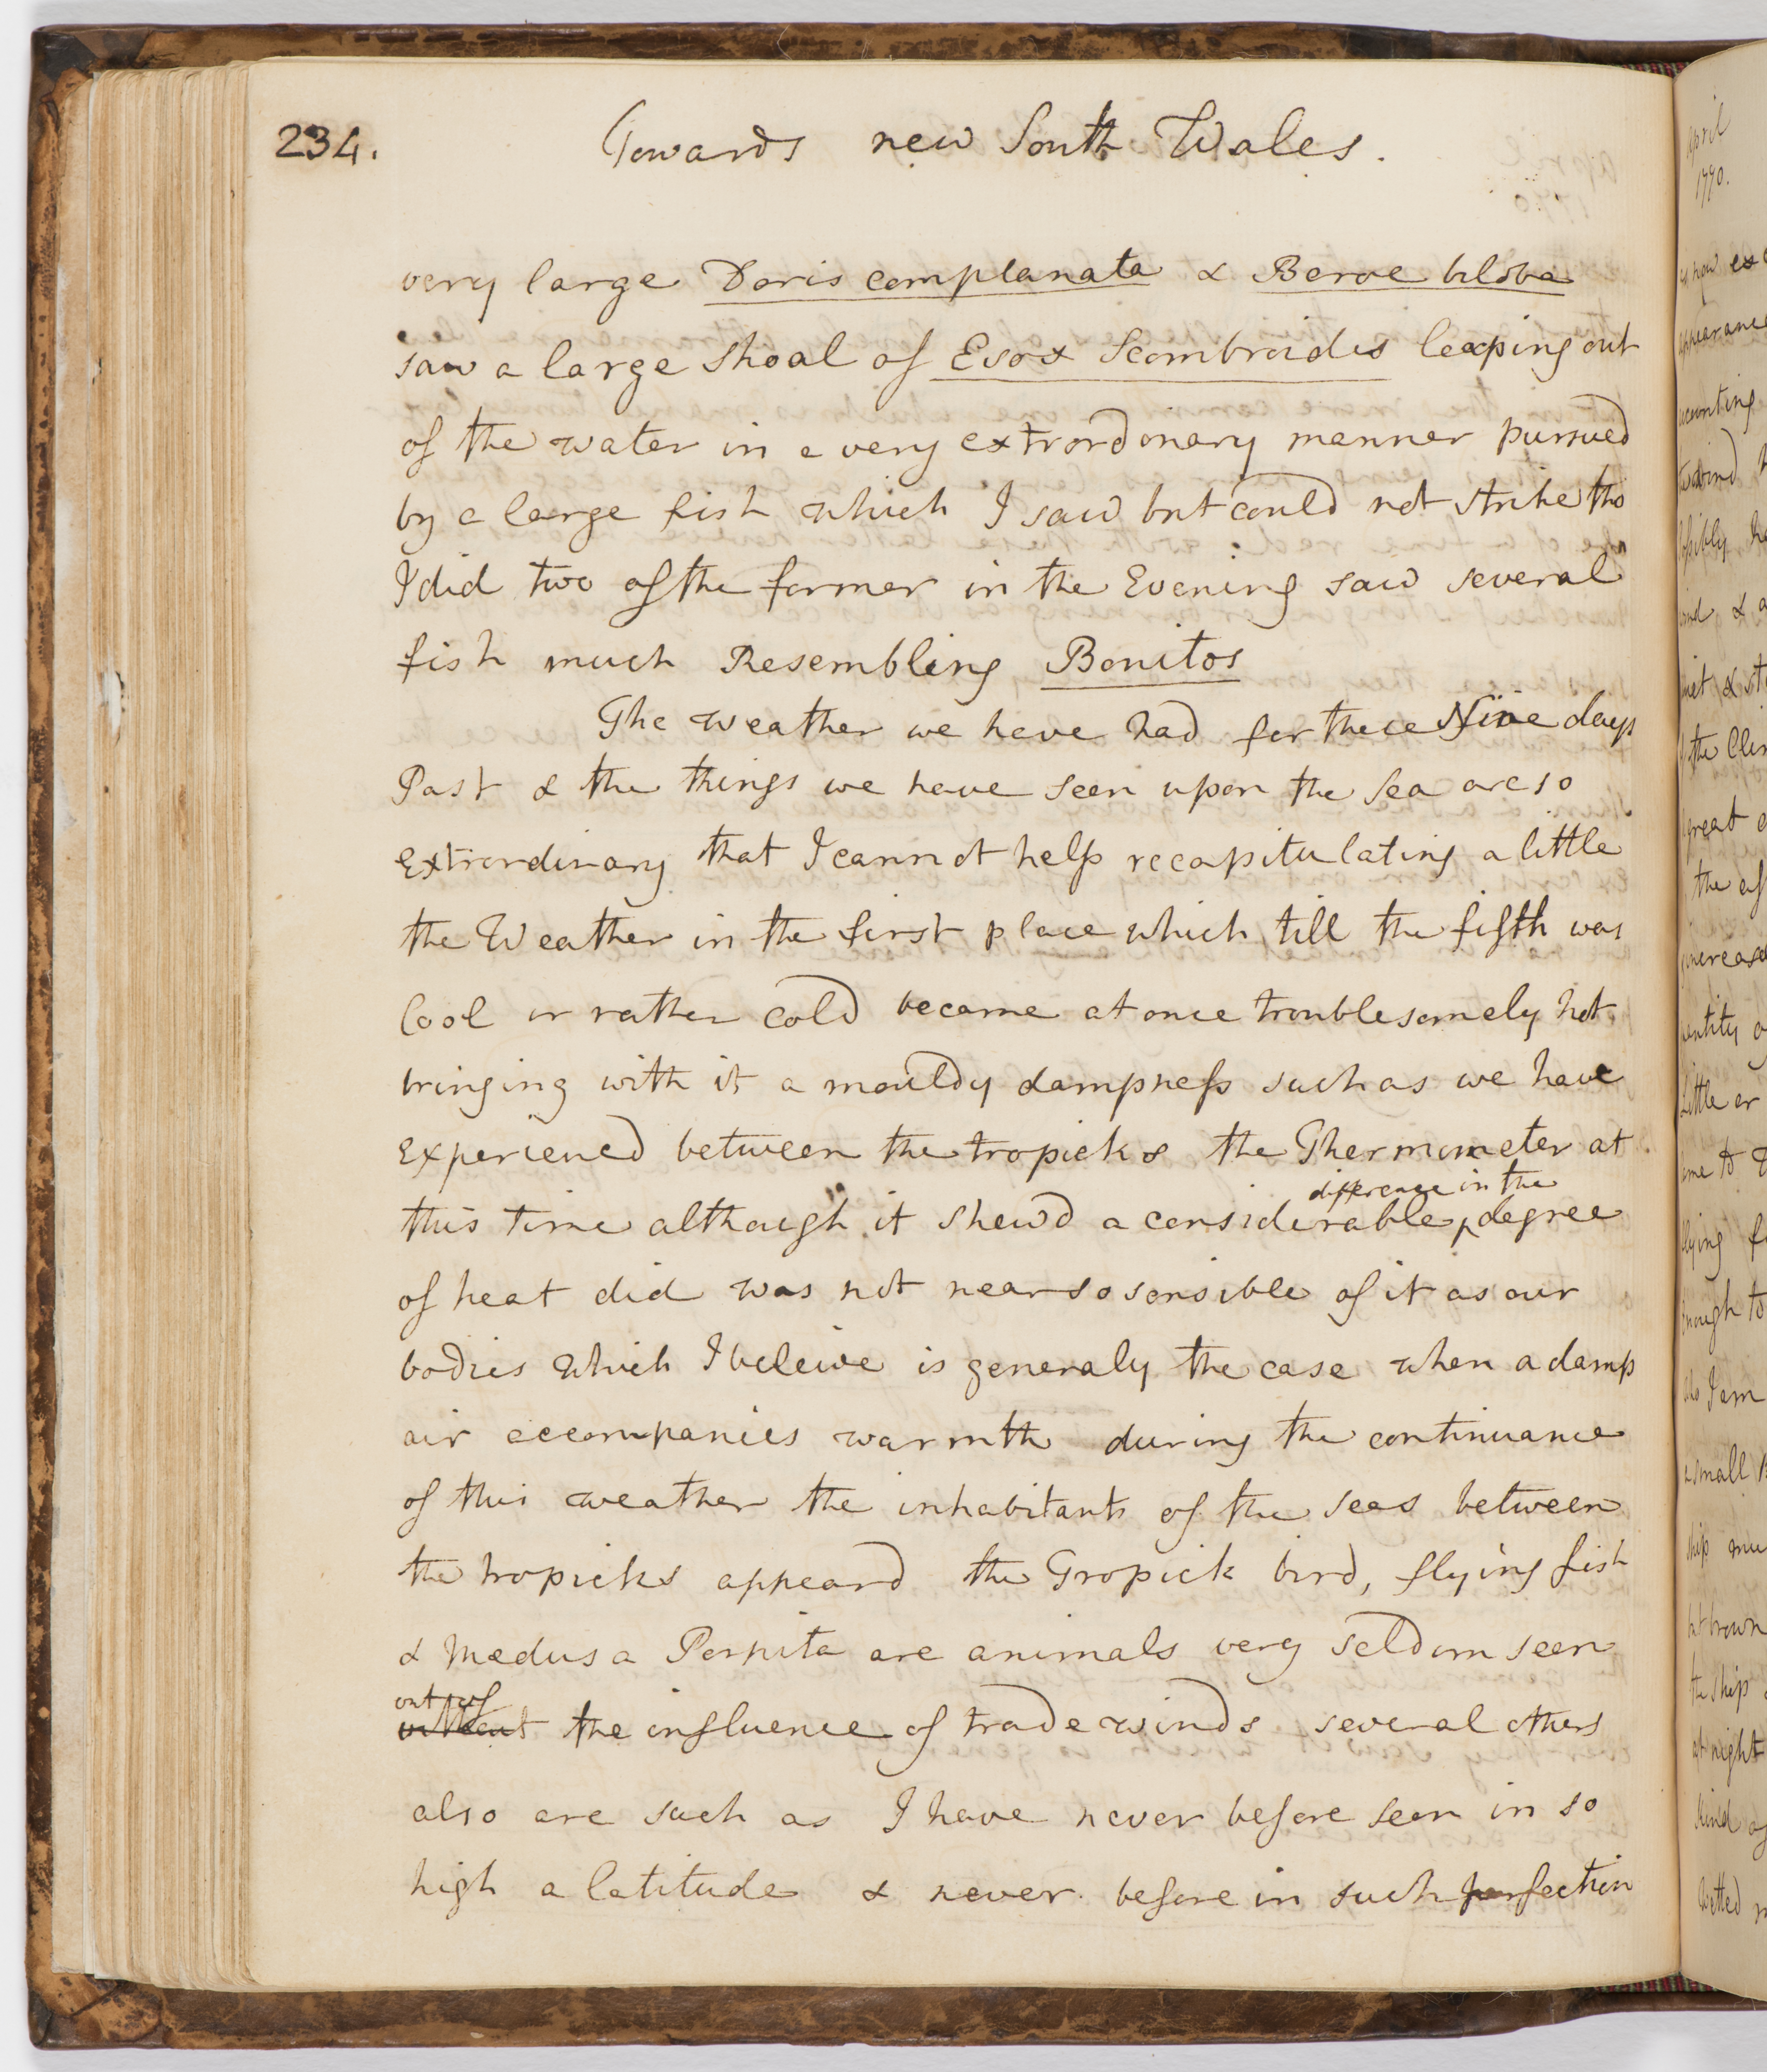 234.
Towards new South Wales.
very large Doris complanata & Beroe biloba
saw a large shoal of Esox Scombroides leaping out
of the water in a very extrordonary manner pursued
by a large fish which I saw but could not strike tho
I did two of the former in the Evening saw several
fish much Resembling Bonitos
The weather we have had for these Nine days
Past & the things we have seen upon the Sea are so
extrordinary that I cannot help recapitulating a little
the Weather in the first place which till the fifth was
Cool or rather cold became at once troublesomely hot
bringing with it a mouldy dampness such as we have
experienced between the tropicks the Thermometer at
difference in the
this time although it shewd a considerable degree
of heat did was not near so sensible of it as our
bodies which I beleive is generaly the case when a damp
air accompanies warmth during the continuance
of this weather the inhabitants of the seas between
the tropicks appeard the Tropick bird, flying fish
& Medusa Porpita are animals very seldom seen
out of
without the influence of trade winds several others
also are such as I have never before seen in so
high a latitude & never before in such perfection
April
1770.